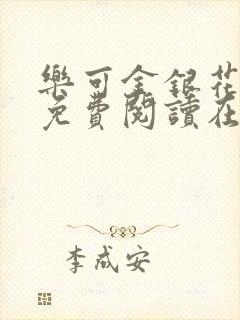 樂可金銀花
免費閱讀在
李成安